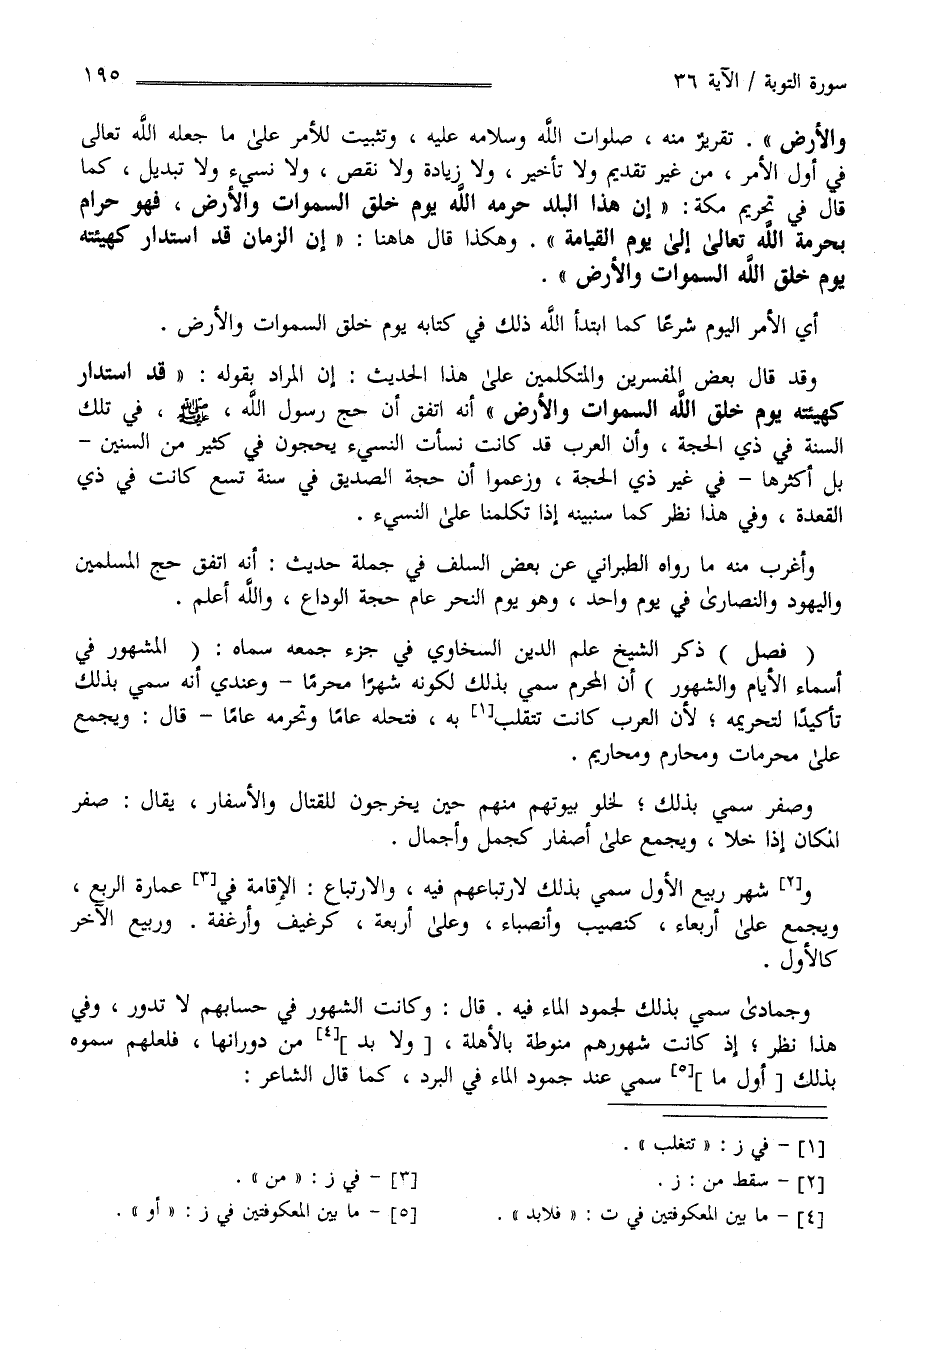 سورة التوبة / الآية ٣٦ ١٩٥
والأرض » . تقريرٌ منه ، صلوات اللَّه وسلامه عليه ، وتثبيت للأمر علىٰ ما جعله اللَّه تعالى
في أول الأمر ، من غير تقديم ولا تأخير ، ولا زيادة ولا نقص ، ولا نسيء ولا تبديل ، كما
قال في تحريم مكة : « إن هذا البلد حرمه اللَّه يوم خلق السموات والأرض ، فهو حرام
بحرمة اللَّه تعالىٰ إلىٰ يوم القيامة » . وهكذا قال هاهنا : « إن الزمان قد استدار كهيئته
يوم خلق اللَّه السموات والأرض » .
أي الأمر اليوم شرعًا كما ابتدأ اللَّه ذلك في كتابه يوم خلق السموات والأرض .
وقد قال بعض المفسرين والمتكلمين علىٰ هذا الحديث : إن المراد بقوله : « قد استدار
كهيئته يوم خلق اللَّه السموات والأرض » أنه اتفق أن حج رسول اللَّه ، ﷺ ، في تلك
السنة في ذي الحجة ، وأن العرب قد كانت نسأت النسيء يحجون في كثير من السنين -
بل أكثرها - في غير ذي الحجة ، وزعموا أن حجة الصديق في سنة تسع كانت في ذي
القعدة ، وفي هذا نظر كما سنبينه إذا تكلمنا علىٰ النسيء .
وأغرب منه ما رواه الطبراني عن بعض السلف في جملة حديث : أنه اتفق حج المسلمين
واليهود والنصارىٰ في يوم واحد ، وهو يوم النحر عام حجة الوداع ، واللَّه أعلم .
( فصل ) ذكر الشيخ علم الدين السخاوي في جزء جمعه سماه : ( المشهور في
أسماء الأيام والشهور ) أن المحرم سمي بذلك لكونه شهرًا محرمًا - وعندي أنه سمي بذلك
تأكيدًا لتحريمه ؛ لأن العرب كانت تتقلب[١] به ، فتحله عامًا وتحرمه عامًا - قال : ويجمع
علىٰ محرمات ومحارم ومحاريم .
وصفر سمي بذلك ؛ لخلو بيوتهم منهم حين يخرجون للقتال والأسفار ، يقال : صفر
المكان إذا خلا ، ويجمع علىٰ أصفار كجمل وأجمال .
و[٢] شهر ربيع الأول سمي بذلك لارتباعهم فيه ، والارتباع : الإقامة في[٣] عمارة الربع ،
ويجمع علىٰ أربعاء ، كنصيب وأنصباء ، وعلىٰ أربعة ، كرغيف وأرغفة . وربيع الآخر
كالأول .
وجمادىٰ سمي بذلك لجمود الماء فيه . قال : وكانت الشهور في حسابهم لا تدور ، وفي
هذا نظر ؛ إذ كانت شهورهم منوطة بالأهلة ، [ ولا بد ][٤] من دورانها ، فلعلهم سموه
بذلك [ أول ما ][٥] سمي عند جمود الماء في البرد ، كما قال الشاعر :
[١] - في ز : « تتغلب » .
[٢] - سقط من : ز . [٣] - في ز : « من » .
[٤] - ما بين المعكوفتين في ت : « فلابد » . [٥] - ما بين المعكوفتين في ز : « أو » .